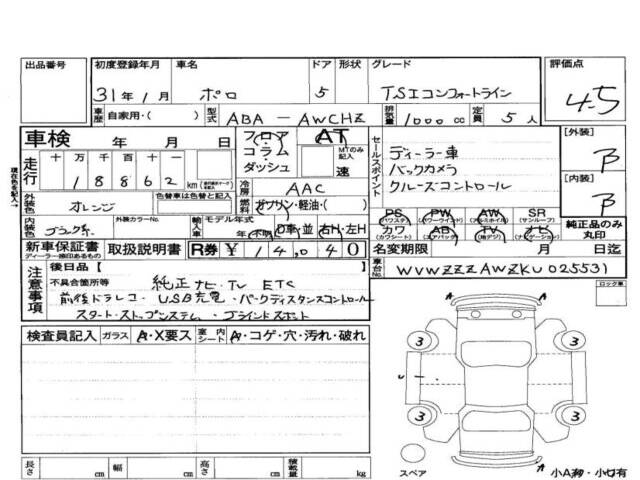 出品番号 初度登録年月 車名 ドア 形状 グレード 評価点
31年1月 ポロ 5 TSIコンフォートライン 4.5
車歴 自家用・( ) 型式 ABA－AWCHZ 排気量 1000cc 定員 5人
車検 年 月 日 フロア AT セールスポイント [外装]
コラム・ MTのみ記入 ディーラー車 B
走行 十 万 千 百 十 一 ダッシュ 速 バックカメラ
18862 km 冷房 AAC クルーズコントロール [内装]
外装色 オレンジ 色替車は色替と記入 燃料 ガソリン・軽油・( ) B
PS PW AW SR
(パワステ) (パワーウインド) (アルミホイル) (サンルーフ)
内装色 ブラック系 外装カラーNo. 輸入車 モデル年式 年(不明) D車・並 右H・左H カワ AB TV ナビ 純正品のみ丸印
(カワシート) (エアバック) (地デジ) (ナビゲーション)
新車保証書 取扱説明書 R券 ¥14,040 名変期限 月 日迄
ディーラー捺印あるもの
注意事項 後日品【 】 車台No. WVWZZZAWZKU025531
不具合箇所等 純正ナビ.TV ETC ロック車
前後ドラレコ・USB充電・パークディスタンスコントロール
スタートストップシステム・ブラインドスポット
検査員記入 ガラス A・X要ス 室内シート A・コゲ・穴・汚れ・破れ
A
3 3
3 3
スペア A 小A有・小U有
長さ cm 幅 cm 高さ cm 積載量 kg